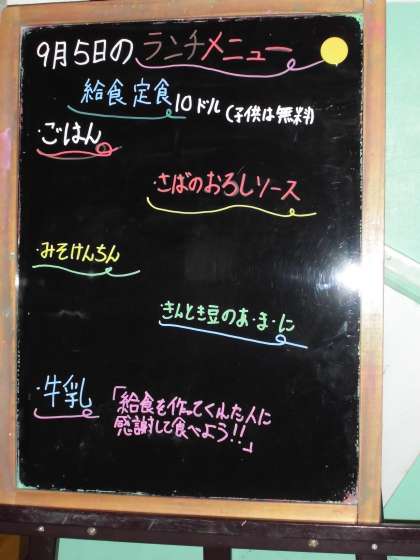 9月5日のランチメニュー
給食定食10ドル(子供は無料)
・ごはん
・さばのおろしソース
・みそけんちん
・きんとき豆のあ・ま・に
・牛乳
「給食を作ってくれた人に
感謝して食べよう!!」